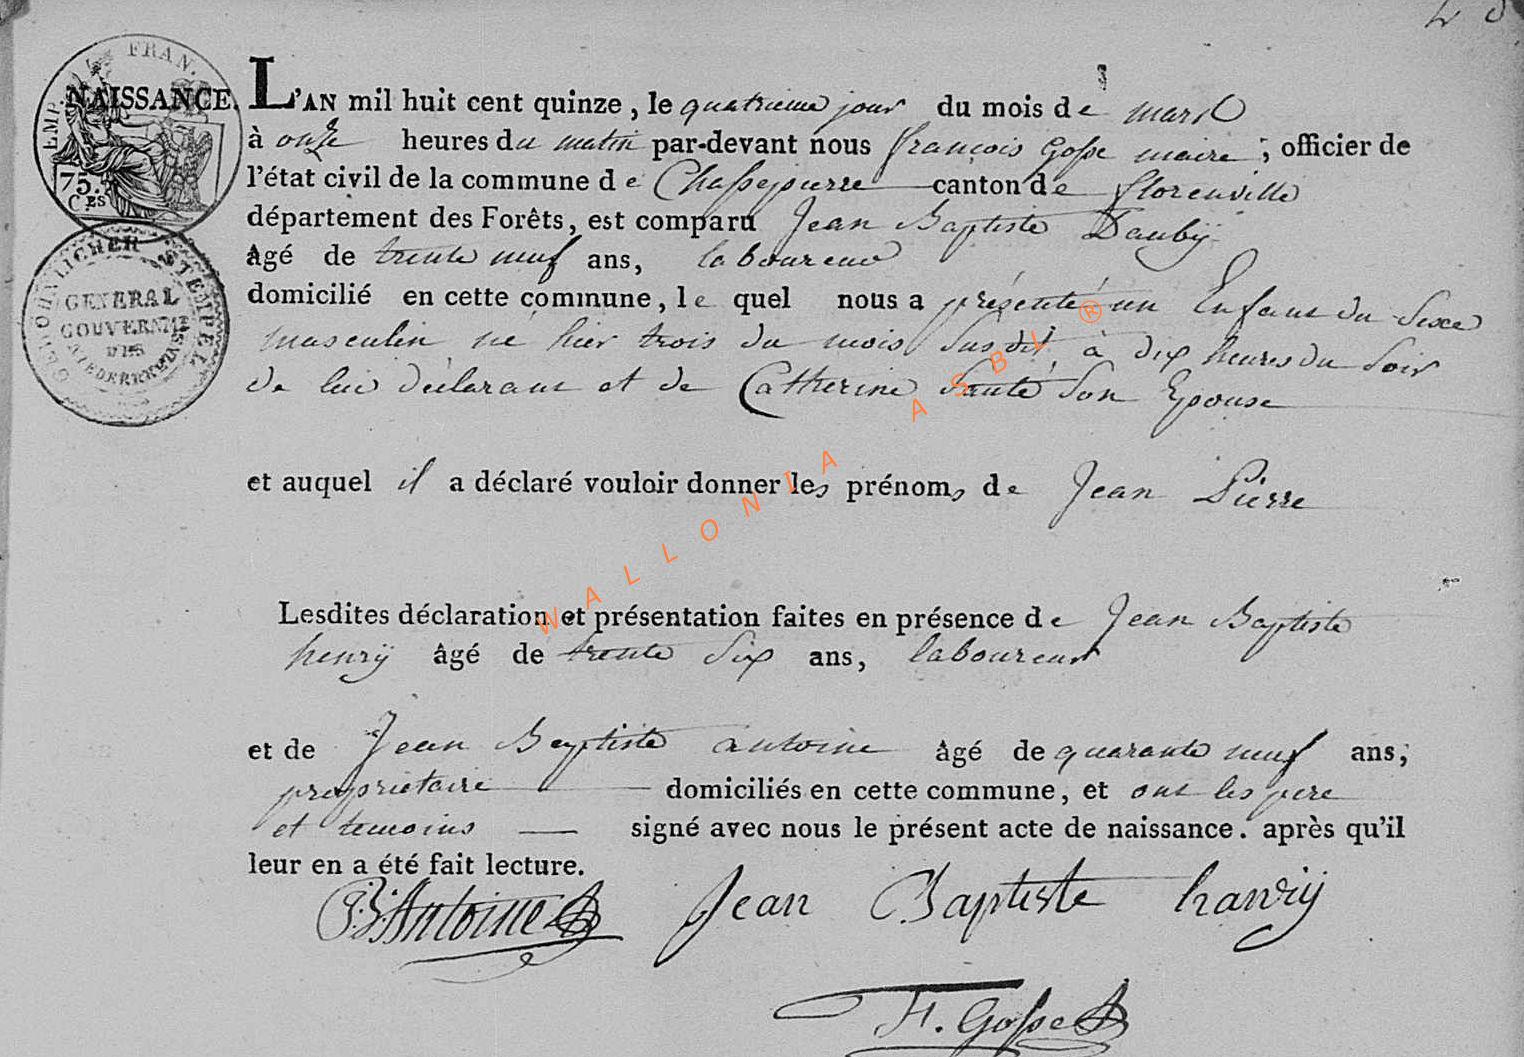 4 8
EMP. FRAN.
75.
C.ES
NAISSANCE.
GEN. NIEDERRHEIN
STEMPEL
GENERAL
GOUVERNEM
L'AN mil huit cent quinze, le quatrieme jour du mois de mars
à onze heures du matin par-devant nous françois Gosse maire ; officier de
l'état civil de la commune de Chassepierre canton de florenville
département des Forêts, est comparu Jean Baptiste Daubÿ
âgé de trente neuf ans, laboureur
domicilié en cette commune, le quel nous a présenté un Enfant du Sexe
masculin né hier trois du mois Susdit, à dix heures du Soir
de lui déclarant et de Catherine Santé Son Epouse
et auquel il a déclaré vouloir donner les prénoms de Jean Pierre
Lesdites déclaration et présentation faites en présence de Jean Baptiste
henrÿ âgé de trente Six ans, laboureur
et de Jean Baptiste antoine âgé de quarante neuf ans,
proprietaire domiciliés en cette commune, et ont les pere
et temoins signé avec nous le présent acte de naissance. après qu'il
leur en a été fait lecture.
JB Antoine Jean Baptiste hanrÿ
F. Gosse
WALLONIA ASBL ®